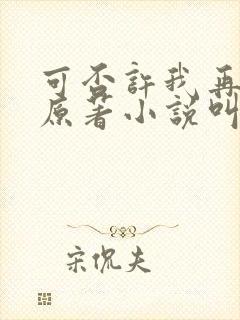 可否許我再
原著小說叫
宋侃夫